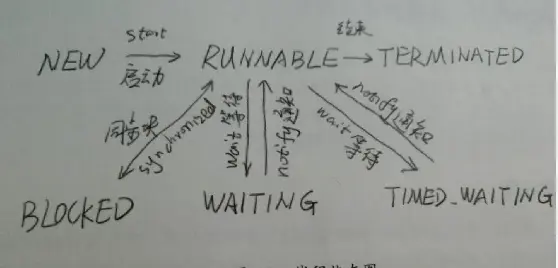 start
NEW
启动
RUNNABLE
结束
TERMINATED
同步块
synchronized
wait等待
notify通知
wait等待
notify通知
BLOCKED
WAITING
TIMED_WAITING